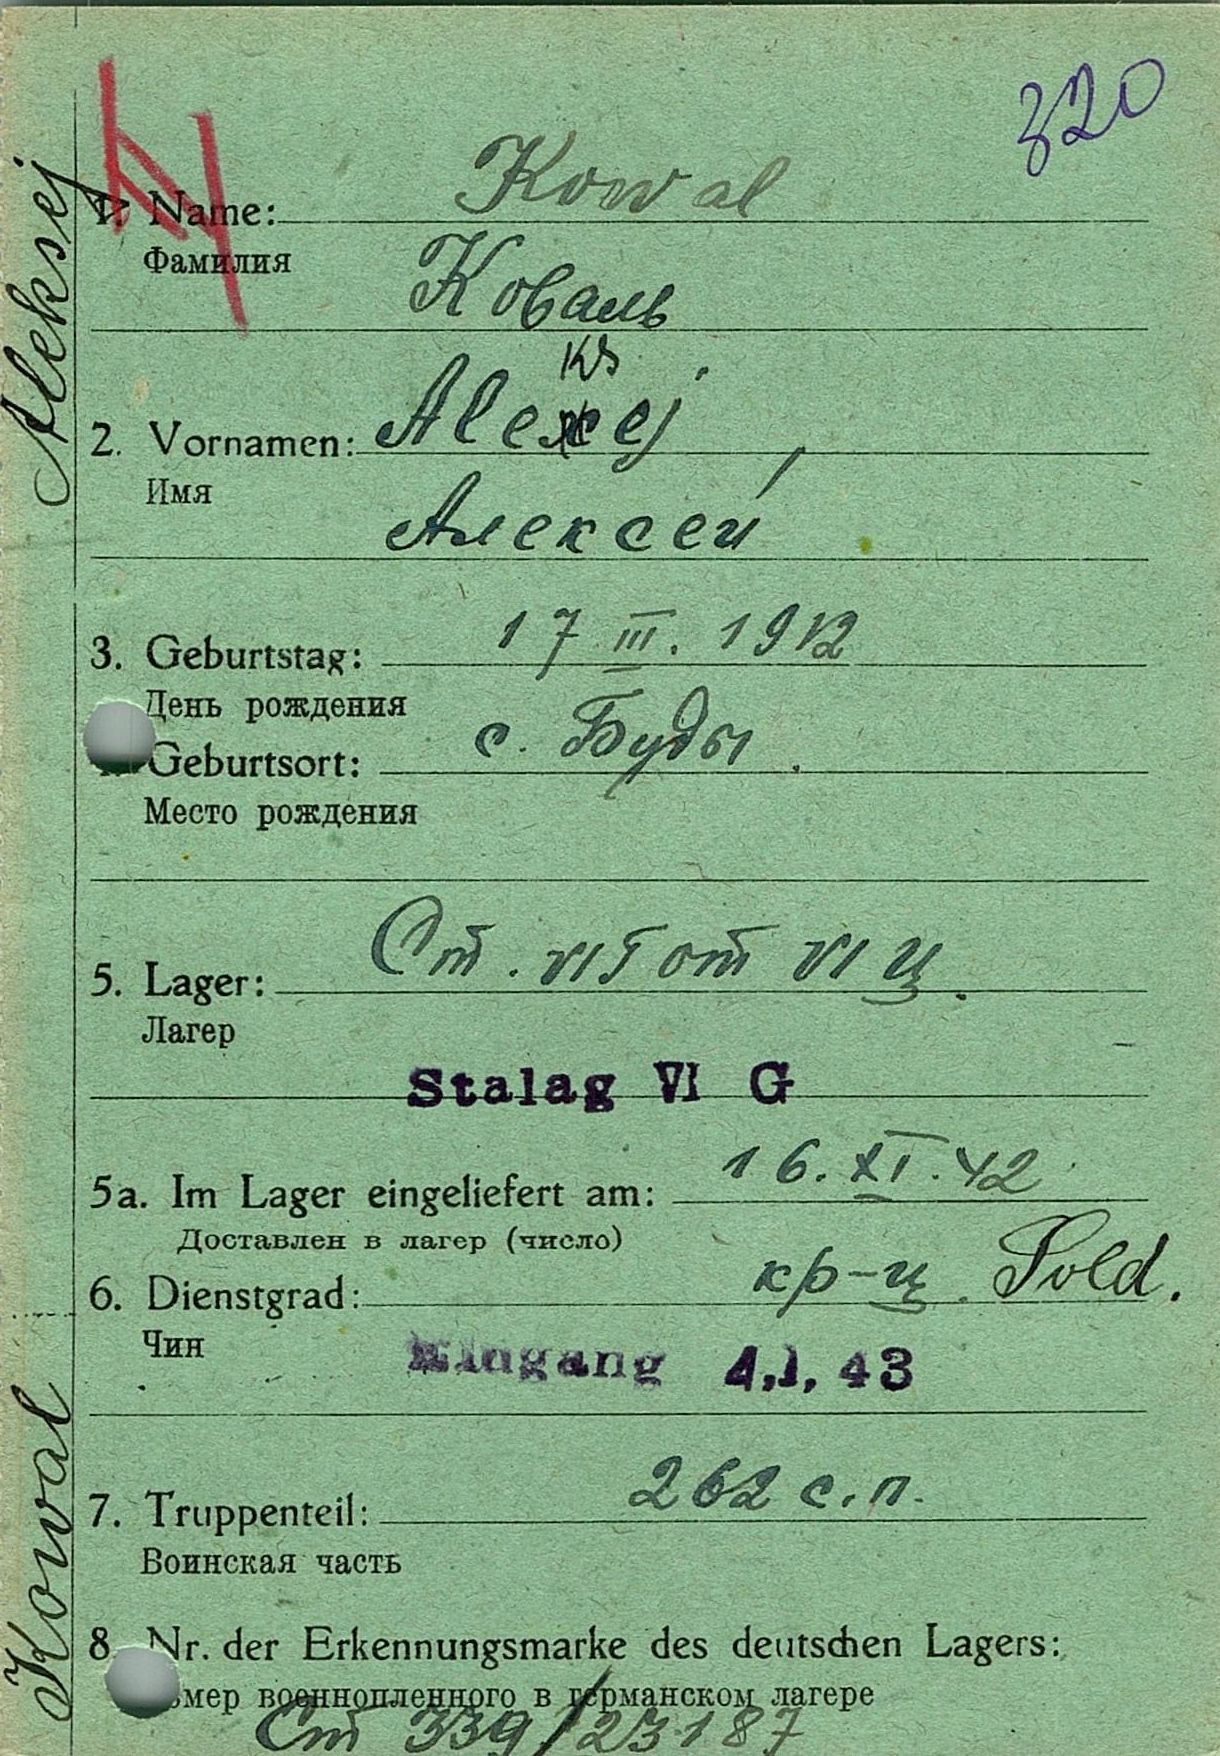 320
1. Name: Kowal
Фамилия
Коваль
ks
2. Vornamen: Alexej
Имя
Алексей
3. Geburtstag: 17 III. 1912
День рождения
Geburtsort: с. Буды.
Место рождения
5. Lager: Ст. VI Г от VI Ц.
Лагер
Stalag VI G
5a. Im Lager eingeliefert am: 16. XI. 42
Доставлен в лагер (число)
6. Dienstgrad: кр-ц. Sold.
Чин
Eingang 4.1.43
7. Truppenteil: 262 с.п.
Воинская часть
8. Nr. der Erkennungsmarke des deutschen Lagers:
мер военнопленного в германском лагере
Ст 339/23187
Kowal Aleksej